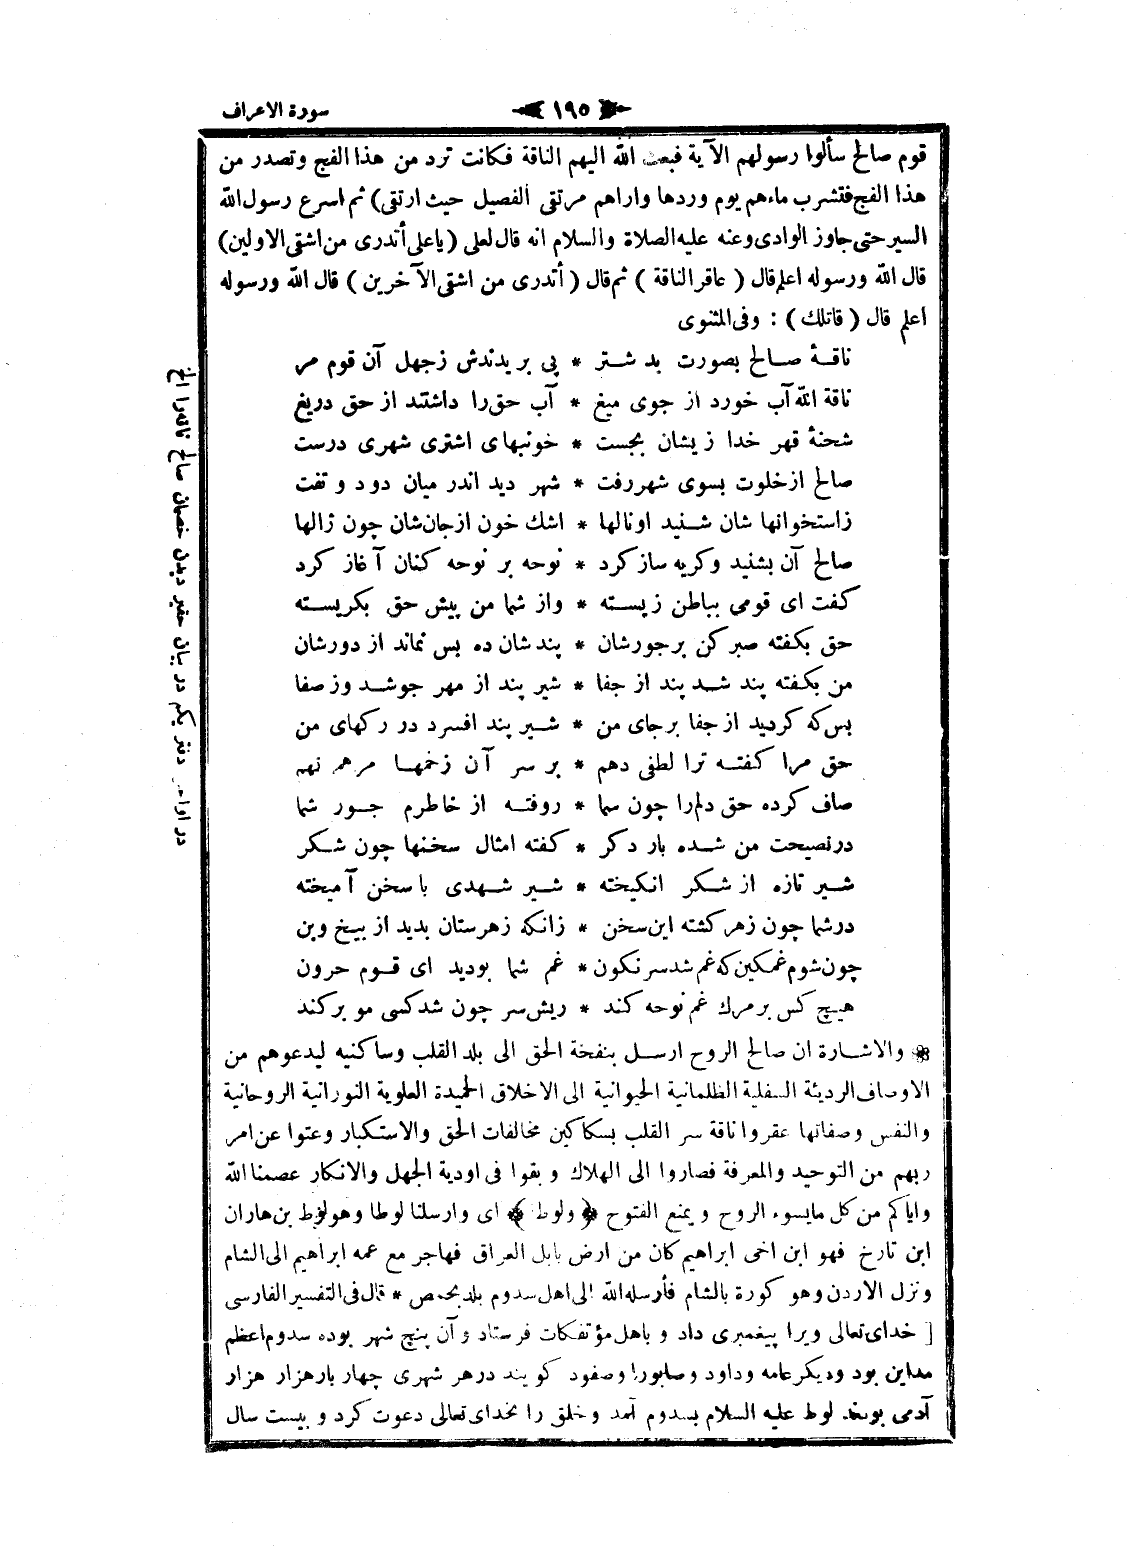 سورة الاعراف
١٩٥
قوم صالح سألوا رسولهم الآية فبعث الله اليهم الناقة فكانت ترد من هذا الفج وتصدر من
هذا الفج فتشرب ماءهم يوم وردها واراهم مرتقى الفصيل حيث ارتقى) ثم اسرع رسول الله
السير حتى جاوز الوادى وعنه عليه الصلاة والسلام انه قال لعلى (ياعلى أتدرى من اشقى الاولين)
قال الله ورسوله اعلم قال ( عاقر الناقة ) ثم قال ( أتدرى من اشقى الآخرين ) قال الله ورسوله
اعلم قال ( قاتلك ) : وفى المثنوى
ناقهٔ صالح بصورت بد شتر * پى بريدندش زجهل آن قوم مر
ناقة الله آب خورد از جوى ميغ * آب حق را داشتند از حق دريغ
شحنهٔ قهر خدا زيشان بجست * خونبهاى اشترى شهرى درست
صالح از خلوت بسوى شهر رفت * شهر ديد اندر ميان دود و تفت
زاستخوانها شان شنيد او نالها * اشك خون از جان شان چون ژالها
صالح آن بشنيد وكريه ساز كرد * نوحه بر نوحه كنان آغاز كرد
كفت اى قومى بباطن زيسته * واز شما من پيش حق بكريسته
حق بكفته صبر كن بر جورشان * پند شان ده بس نماند از دورشان
من بكفته پند شد پند از جفا * شير پند از مهر جوشد وز صفا
بس كه كرديد از جفا بر جاى من * شير پند افسرد در ركهاى من
حق مرا كفته ترا لطفى دهم * بر سر آن زخمها مرهم نهم
صاف كرده حق دلم را چون سما * روفته از خاطرم جور شما
در نصيحت من شده بار دكر * كفته امثال سخنها چون شكر
شير تازه از شكر انكيخته * شير شهدى با سخن آميخته
در شما چون زهر كشته اين سخن * زانكه زهرستان بديد از بيخ وبن
چون شوم غمكين كه غم شد سر نكون * غم شما بوديد اى قوم حرون
هيچ كس بر مرك غم نوحه كند * ريش سر چون شد كسى مو بركند
والاشارة ان صالح الروح ارسل بنفخة الحق الى بلد القلب وساكنيه ليدعوهم من
الاوصاف الرديئة السفلية الظلمانية الحيوانية الى الاخلاق الحميدة العلوية النورانية الروحانية
والنفس وصفاتها عقروا ناقة سر القلب بسكاكين مخالفات الحق والاستكبار وعتوا عن امر
ربهم من التوحيد والمعرفة فصاروا الى الهلاك و بقوا فى اودية الجهل والانكار عصمنا الله
واياكم من كل مايسوء الروح و يمنع الفتوح ﴿ ولوط ﴾ اى وارسلنا لوطا وهو لوط بن هاران
ابن تارخ فهو ابن اخى ابراهيم كان من ارض بابل العراق فهاجر مع عمه ابراهيم الى الشام
ونزل الاردن وهو كورة بالشام فأرسله الله الى اهل سدوم بلد بحمص * قال فى التفسير الفارسى
[ خداى تعالى ويرا پيغمبرى داد و باهل مؤتفكات فرستاد و آن پنچ شهر بوده سدوم اعظم
مداين بود وديكر عامه وداود وصابورا وصفود كويند در هر شهرى چهار بار هزار هزار
آدمى بودند لوط عليه السلام بسدوم آمد وخلق را بخداى تعالى دعوت كرد و بيست سال
در اوا دفتر يكم در بيان حقير ديدن خصمان صالح ناقه را الخ